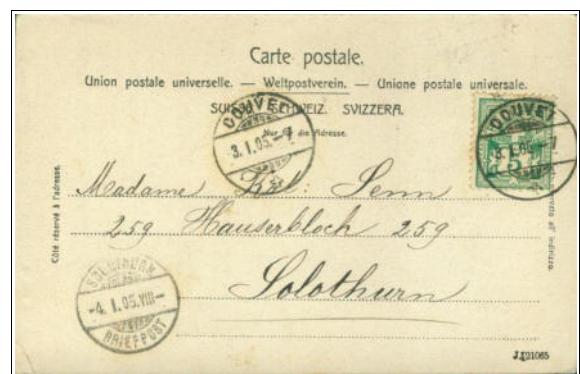 Carte postale.
Union postale universelle. — Weltpostverein. — Unione postale universale.
SUISSE. SCHWEIZ. SVIZZERA.
Nur für die Adresse.
COUVET
3.I.05.-7
COUVET
3.I.05.-7
5
Côté réservé à l'adresse.
Madame Senn
259 Hauserbloch 259
Solothurn
SOLOTHURN
-4.I.05.VIII-
BRIEFPOST